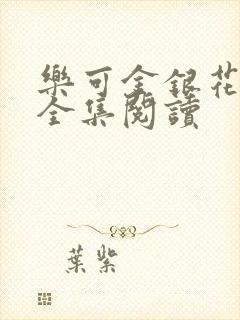 樂可金銀花
全集閱讀
葉紫